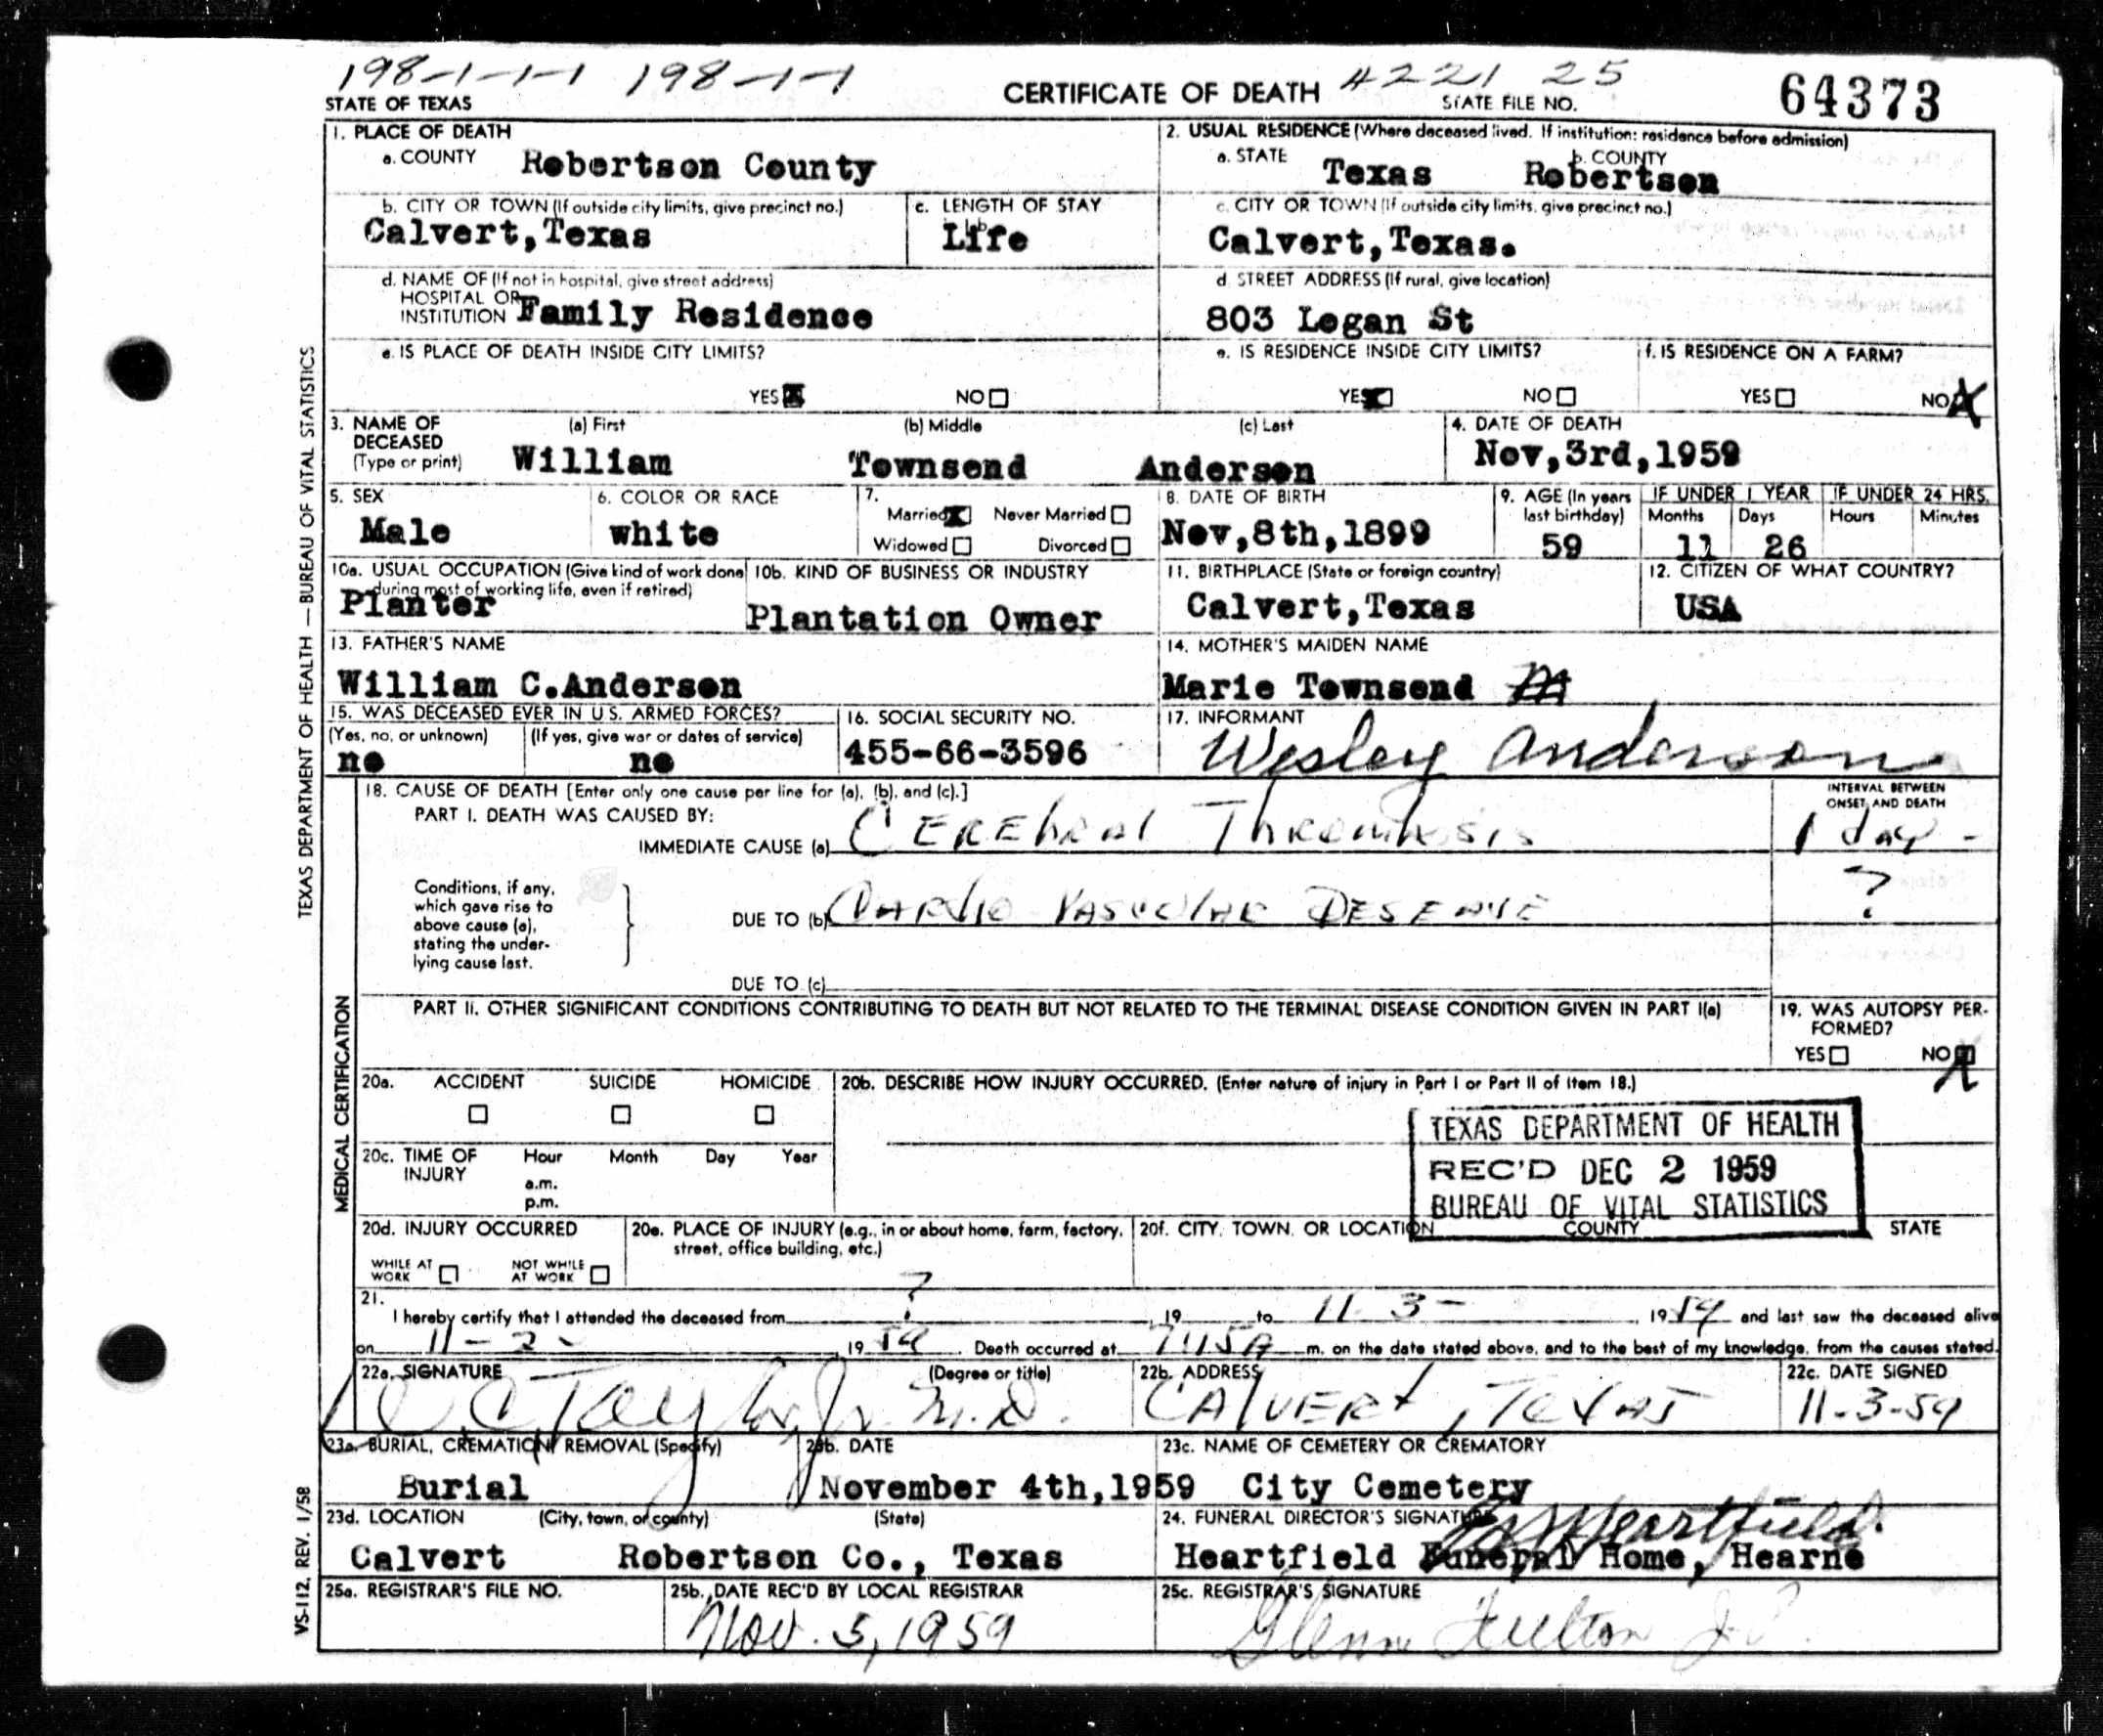 198-1-1-1 198-1-1 4221 25
STATE OF TEXAS CERTIFICATE OF DEATH STATE FILE NO. 64373
1. PLACE OF DEATH
a. COUNTY Robertson County
2. USUAL RESIDENCE (Where deceased lived. If institution: residence before admission)
a. STATE Texas b. COUNTY Robertson
b. CITY OR TOWN (If outside city limits, give precinct no.)
Calvert,Texas
c. LENGTH OF STAY
Life
c. CITY OR TOWN (If outside city limits, give precinct no.)
Calvert,Texas.
d. NAME OF (If not in hospital, give street address)
HOSPITAL OR
INSTITUTION Family Residence
d. STREET ADDRESS (If rural, give location)
803 Logan St
e. IS PLACE OF DEATH INSIDE CITY LIMITS?
YES NO
e. IS RESIDENCE INSIDE CITY LIMITS?
YES NO
f. IS RESIDENCE ON A FARM?
YES NO X
3. NAME OF
DECEASED
(Type or print)
(a) First (b) Middle (c) Last
William Townsend Anderson
4. DATE OF DEATH
Nov,3rd,1959
5. SEX
Male
6. COLOR OR RACE
white
7.
Married Never Married
Widowed Divorced
8. DATE OF BIRTH
Nov,8th,1899
9. AGE (In years
last birthday)
59
IF UNDER 1 YEAR
Months Days
11 26
IF UNDER 24 HRS.
Hours Minutes
10a. USUAL OCCUPATION (Give kind of work done
during most of working life, even if retired)
Planter
10b. KIND OF BUSINESS OR INDUSTRY
Plantation Owner
11. BIRTHPLACE (State or foreign country)
Calvert,Texas
12. CITIZEN OF WHAT COUNTRY?
USA
13. FATHER'S NAME
William C.Anderson
14. MOTHER'S MAIDEN NAME
Marie Townsend
15. WAS DECEASED EVER IN U.S. ARMED FORCES?
(Yes, no, or unknown) (If yes, give war or dates of service)
no no
16. SOCIAL SECURITY NO.
455-66-3596
17. INFORMANT
Wesley Anderson
18. CAUSE OF DEATH [Enter only one cause per line for (a), (b), and (c).]
PART I. DEATH WAS CAUSED BY:
IMMEDIATE CAUSE (a) Cerebral Thrombosis
INTERVAL BETWEEN
ONSET AND DEATH
1 day -
Conditions, if any,
which gave rise to
above cause (a),
stating the under-
lying cause last.
DUE TO (b) Cardio Vascular Desease
?
DUE TO (c)
PART II. OTHER SIGNIFICANT CONDITIONS CONTRIBUTING TO DEATH BUT NOT RELATED TO THE TERMINAL DISEASE CONDITION GIVEN IN PART I(a)
19. WAS AUTOPSY PER-
FORMED?
YES NO X
20a. ACCIDENT SUICIDE HOMICIDE
20b. DESCRIBE HOW INJURY OCCURRED. (Enter nature of injury in Part I or Part II of Item 18.)
20c. TIME OF
INJURY
Hour Month Day Year
a.m.
p.m.
TEXAS DEPARTMENT OF HEALTH
REC'D DEC 2 1959
BUREAU OF VITAL STATISTICS
20d. INJURY OCCURRED
WHILE AT
WORK
NOT WHILE
AT WORK
20e. PLACE OF INJURY (e.g., in or about home, farm, factory,
street, office building, etc.)
20f. CITY, TOWN, OR LOCATION COUNTY STATE
21.
I hereby certify that I attended the deceased from ? , 19 to 11 3 - , 1959 and last saw the deceased alive
on 11-2- , 19 59 . Death occurred at 7:15A m. on the date stated above, and to the best of my knowledge, from the causes stated.
22a. SIGNATURE (Degree or title)
Taylor Jr. M.D.
22b. ADDRESS
Calvert, Texas
22c. DATE SIGNED
11-3-59
23a. BURIAL, CREMATION, REMOVAL (Specify)
Burial
23b. DATE
November 4th,1959
23c. NAME OF CEMETERY OR CREMATORY
City Cemetery
23d. LOCATION (City, town, or county) (State)
Calvert Robertson Co., Texas
24. FUNERAL DIRECTOR'S SIGNATURE
Heartfield.
Heartfield Funeral Home, Hearne
25a. REGISTRAR'S FILE NO.
25b. DATE REC'D BY LOCAL REGISTRAR
Nov. 5, 1959
25c. REGISTRAR'S SIGNATURE
Glenn Fulton
TEXAS DEPARTMENT OF HEALTH—BUREAU OF VITAL STATISTICS
MEDICAL CERTIFICATION
VS-112, REV. 1/58